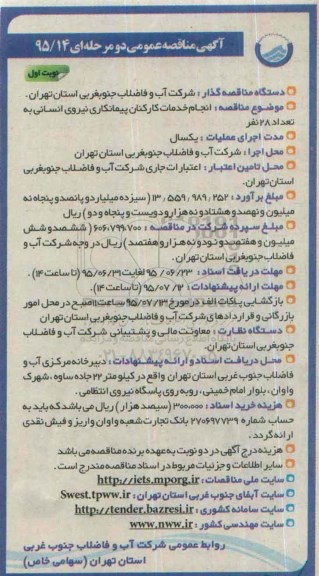 آگهی مناقصه عمومی دو مرحله ای ۹۵/۱۴
نوبت اول
دستگاه مناقصه گذار : شرکت آب و فاضلاب جنوبغربی استان تهران.
موضوع مناقصه : انجام خدمات کارکنان پیمانکاری نیروی انسانی به
تعداد ۲۸ نفر
مدت اجرای عملیات : یکسال
محل اجرا : شرکت آب و فاضلاب جنوبغربی استان تهران
محل تامین اعتبار : اعتبارات جاری شرکت آب و فاضلاب جنوبغربی
استان تهران.
مبلغ برآورد : ۱۳٫۵۵۹٫۹۸۹٫۲۵۲ (سیزده میلیارد و پانصد و پنجاه نه
میلیون و نهصد و هشتاد و نه هزار و دویست و پنجاه و دو) ریال
مبلغ سپرده شرکت در مناقصه : ۶۰۶٫۷۹۹٫۷۰۰ (ششصد و شش
میلیون و هفتصد و نود و نه هزار و هفتصد) ریال در وجه شرکت آب و
فاضلاب جنوبغربی استان تهران.
مهلت دریافت اسناد : ۹۵/۰۶/۲۳ لغایت ۹۵/۰۶/۳۱ (تا ساعت ۱۴).
مهلت ارائه پیشنهادات : ۹۵/۰۷/۱۲ (تا ساعت ۱۴).
بازگشایی پاکات الف در مورخ ۹۵/۰۷/۱۳ ساعت صبح در محل امور
بازرگانی و قراردادهای شرکت آب و فاضلاب جنوبغربی استان تهران
دستگاه نظارت : معاونت مالی و پشتیبانی شرکت آب و فاضلاب
جنوبغربی استان تهران.
محل دریافت اسناد و ارائه پیشنهادات : دبیرخانه مرکزی آب و
فاضلاب جنوب غربی استان تهران واقع در کیلومتر ۲۲ جاده ساوه، شهرک
واوان، بلوار امام خمینی، روبه روی پاسگاه نیروی انتظامی.
هزینه خرید اسناد : ۳۰۰٫۰۰۰ (سیصد هزار) ریال می باشد که باید به
حساب شماره ۲۷۰۶۹۷۷۳۹ بانک تجارت شعبه واوان واریز و فیش نقدی
ارائه گردد.
هزینه درج آگهی در دو نوبت به عهده برنده مناقصه می باشد
سایر اطلاعات و جزئیات مربوط در اسناد مناقصه مندرج است.
سایت ملی مناقصات : http://iets.mporg.ir
سایت آبفای جنوب غربی استان تهران : Swest.tpww.ir
سایت سامانه کشوری : http://tender.bazresi.ir
سایت مهندسی کشور : www.nww.ir
روابط عمومی شرکت آب و فاضلاب جنوب غربی
استان تهران (سهامی خاص)